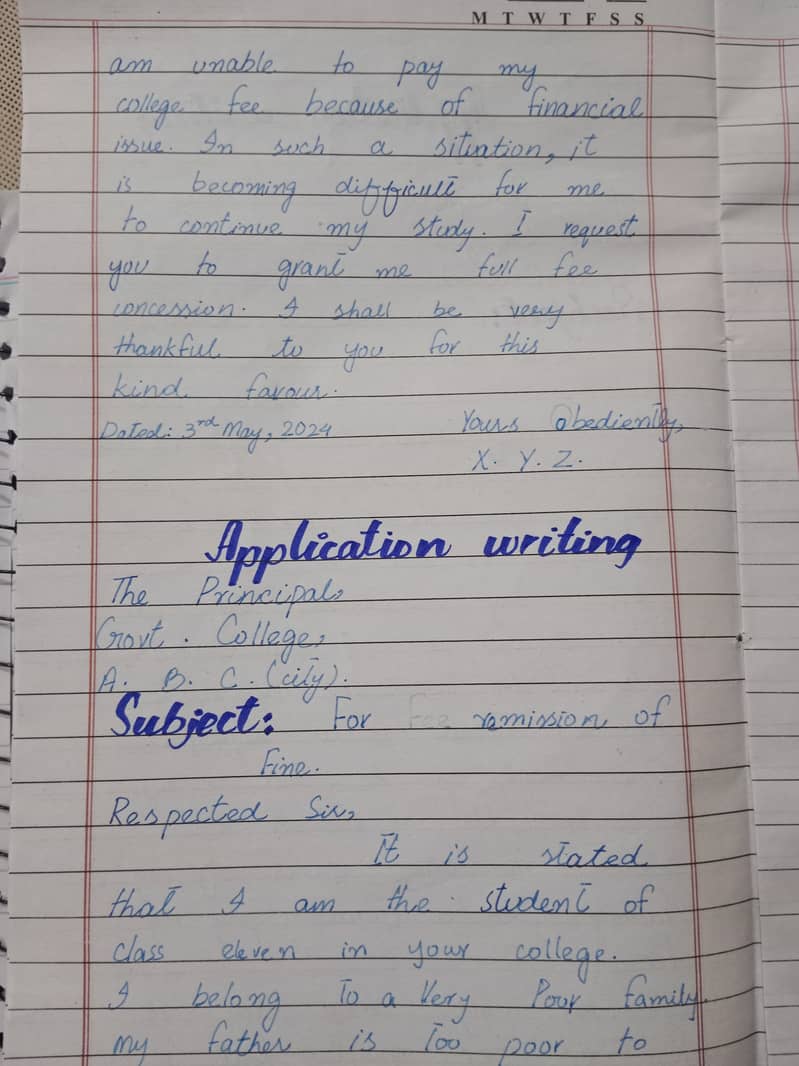 M T W T F S S
am unable to pay my
college fee because of financial
issue. In such a situation, it
is becoming difficult for me
to continue my study. I request
you to grant me full fee
concession. I shall be very
thankful to you for this
kind favour.
Dated: 3rd May, 2024 Yours Obediently,
X. Y. Z.
Application writing
The Principal,
Govt. College,
A. B. C. (city).
Subject: For remission of
Fine.
Respected Sir,
It is stated
that I am the student of
class eleven in your college.
I belong to a Very Poor family.
my father is Too poor to